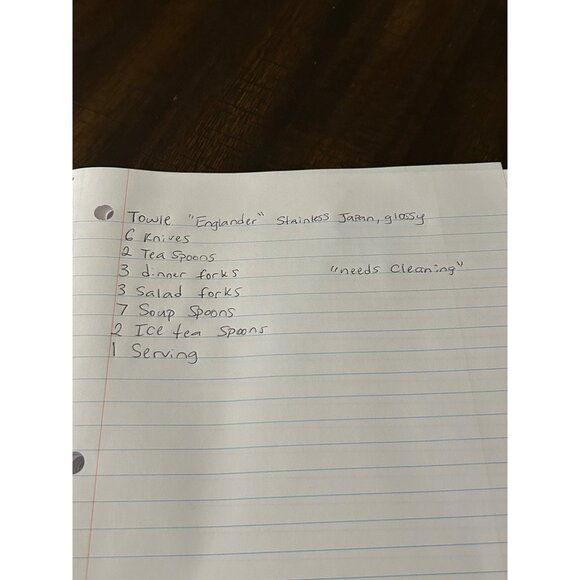 Towle "Englander" Stainless Japan, glossy
6 Knives
2 Tea Spoons
3 dinner forks "needs Cleaning"
3 Salad forks
7 Soup Spoons
2 Ice tea Spoons
1 Serving